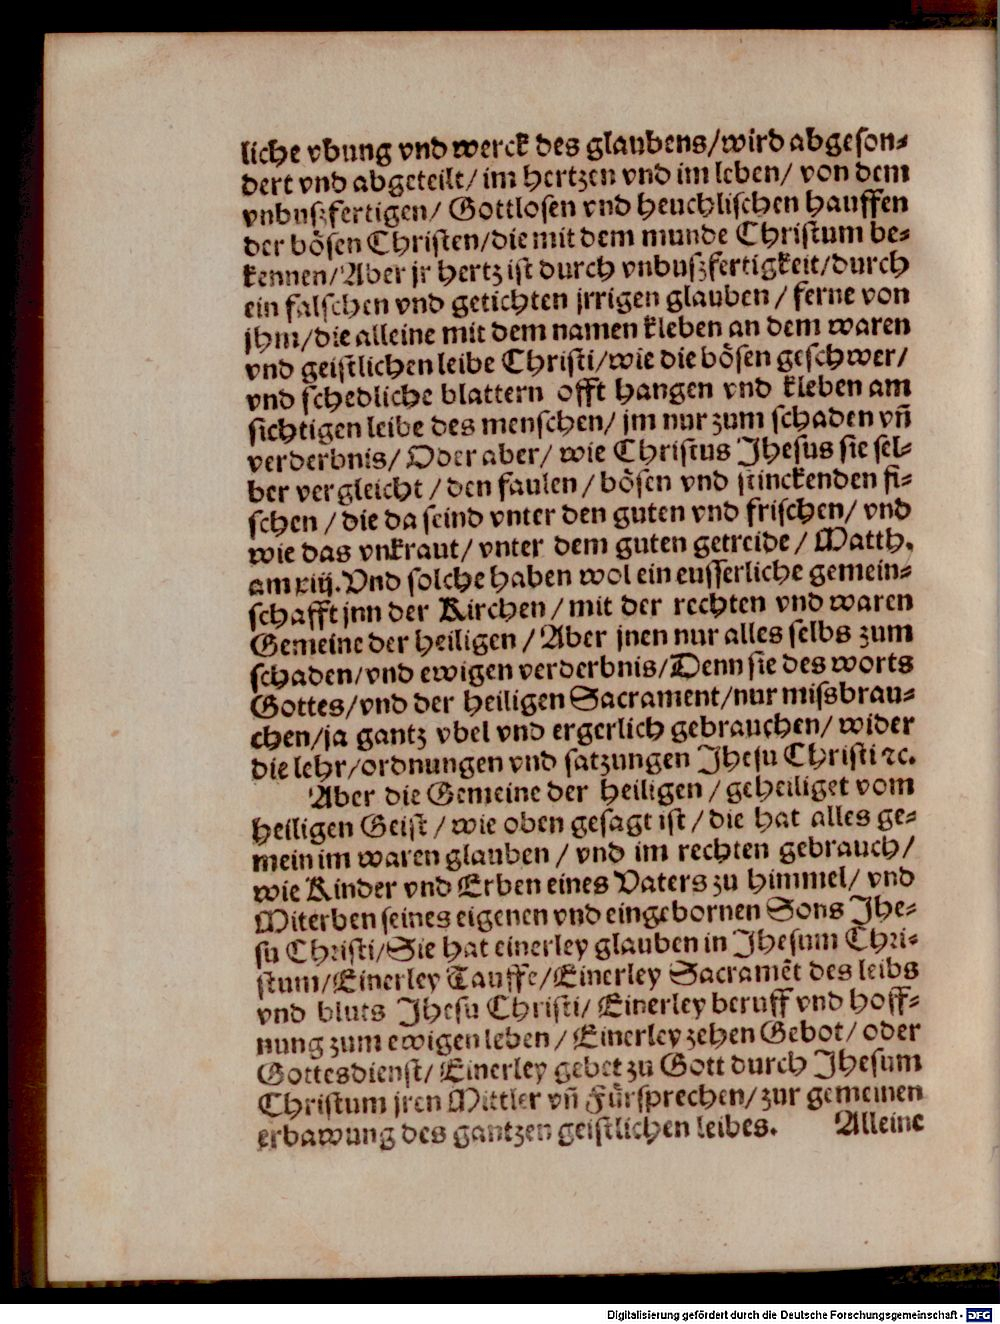 liche vbung vnd werck des glaubens/wird abgeson⸗
dert vnd abgeteilt/ im hertzen vnd im leben/ von dem
vnbuſzfertigen/ Gottlosen vnd heuchlischen hauffen
der bösen Christen/die mit dem munde Christum be⸗
kennen/Aber jr hertz ist durch vnbuſzfertigkeit/durch
ein falschen vnd getichten jrrigen glauben / ferne von
jhm/die alleine mit dem namen kleben an dem waren
vnd geistlichen leibe Christi/wie die bösen geschwer/
vnd schedliche blattern offt hangen vnd kleben am
sichtigen leibe des menschen/ jm nur zum schaden vñ
verderbnis/ Oder aber/ wie Christus Jhesus sie sel⸗
ber vergleicht / den faulen / bösen vnd stinckenden fi⸗
schen / die da seind vnter den guten vnd frischen/ vnd
wie das vnkraut/ vnter dem guten getreide / Matth.
am xiij. Vnd solche haben wol ein eusserliche gemein⸗
schafft jnn der Kirchen / mit der rechten vnd waren
Gemeine der heiligen / Aber jnen nur alles selbs zum
schaden/vnd ewigen verderbnis/Denn sie des worts
Gottes/vnd der heiligen Sacrament/nur missbrau⸗
chen/ja gantz vbel vnd ergerlich gebrauchen/ wider
die lehr/ordnungen vnd satzungen Jhesu Christi ꝛc.
Aber die Gemeine der heiligen / geheiliget vom
heiligen Geist / wie oben gesagt ist / die hat alles ge⸗
mein im waren glauben / vnd im rechten gebrauch/
wie Kinder vnd Erben eines Vaters zu himmel/ vnd
Miterben seines eigenen vnd eingebornen Sons Jhe⸗
su Christi/Sie hat einerley glauben in Jhesum Chri⸗
stum/Einerley Tauffe/Einerley Sacramēt des leibs
vnd bluts Jhesu Christi/ Einerley beruff vnd hoff⸗
nung zum ewigen leben / Einerley zehen Gebot/ oder
Gottesdienst/ Einerley gebet zu Gott durch Jhesum
Christum jren Mittler vñ Fürsprechen/ zur gemeinen
erbawung des gantzen geistlichen leibes. Alleine
Digitalisierung gefördert durch die Deutsche Forschungsgemeinschaft - DFG